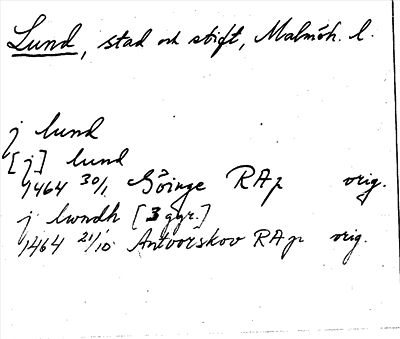 Lund, stad och stift, Malmöh. l.
j lund
[j] lund
1464 30/1 Göinge RAp orig.
j lwndh [3 ggr.]
1464 21/10 Antvorskov RAp orig.